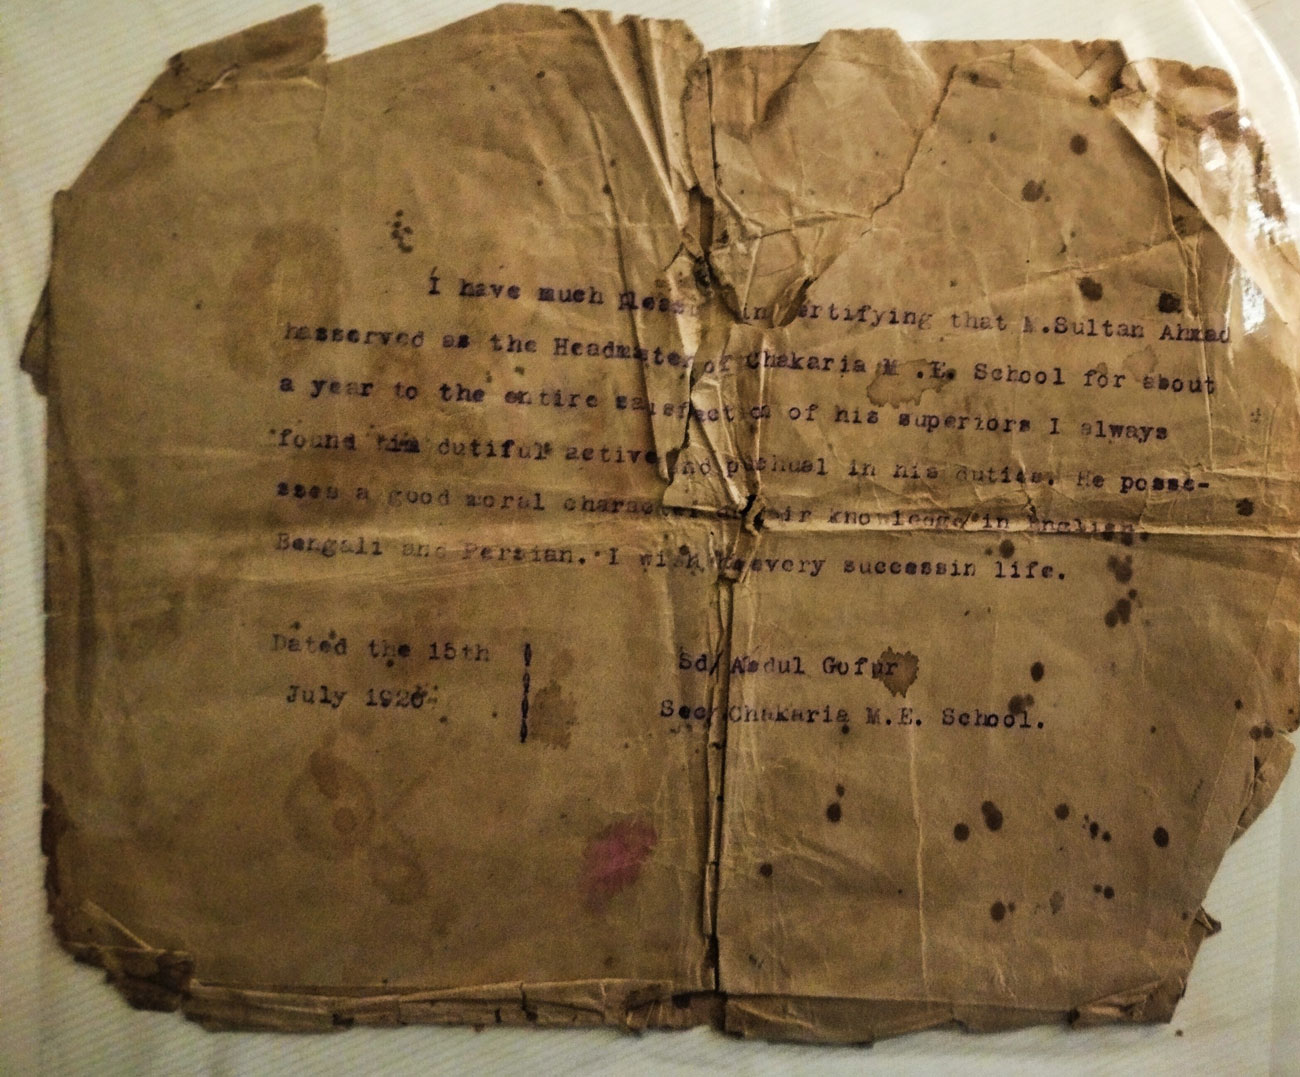 I have much in ertifying that M.Sultan Ahmad
hasserved as the Headmaster of Chakaria M.E. School for about
a year to the entire satisfaction of his superiors I always
found him dutiful active and in his duties. He posse-
sses a good moral knowledge in English,
Bengali and Persian. I wish every successin life.
Dated the 15th
July
Sd/ Abdul Gofur
Secy Chakaria M.E. School.